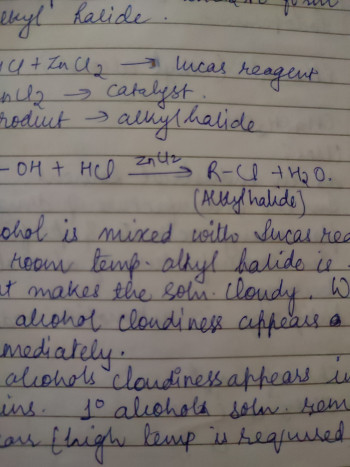 alkyl halide.
HCl + ZnCl2 → lucas reagent
ZnCl2 → catalyst.
Product → alkyl halide
-OH + HCl ZnCl2 → R-Cl + H2O.
(Alkyl halide)
alcohol is mixed with Lucas rea
room temp. alkyl halide is
makes the soln. cloudy. W
alcohol cloudiness appears
mmediately.
alcohols cloudiness appears i
ins. 1° alcohols soln. rem
(high temp is required